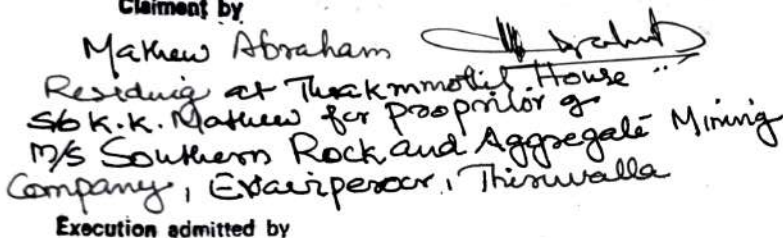 Claiment by
Mathew Abraham
Residing at House
S/o K.K. Mathew for propritor of
M/s Southern Rock and Aggregate Mining
Company, Thiruvalla
Execution admitted by